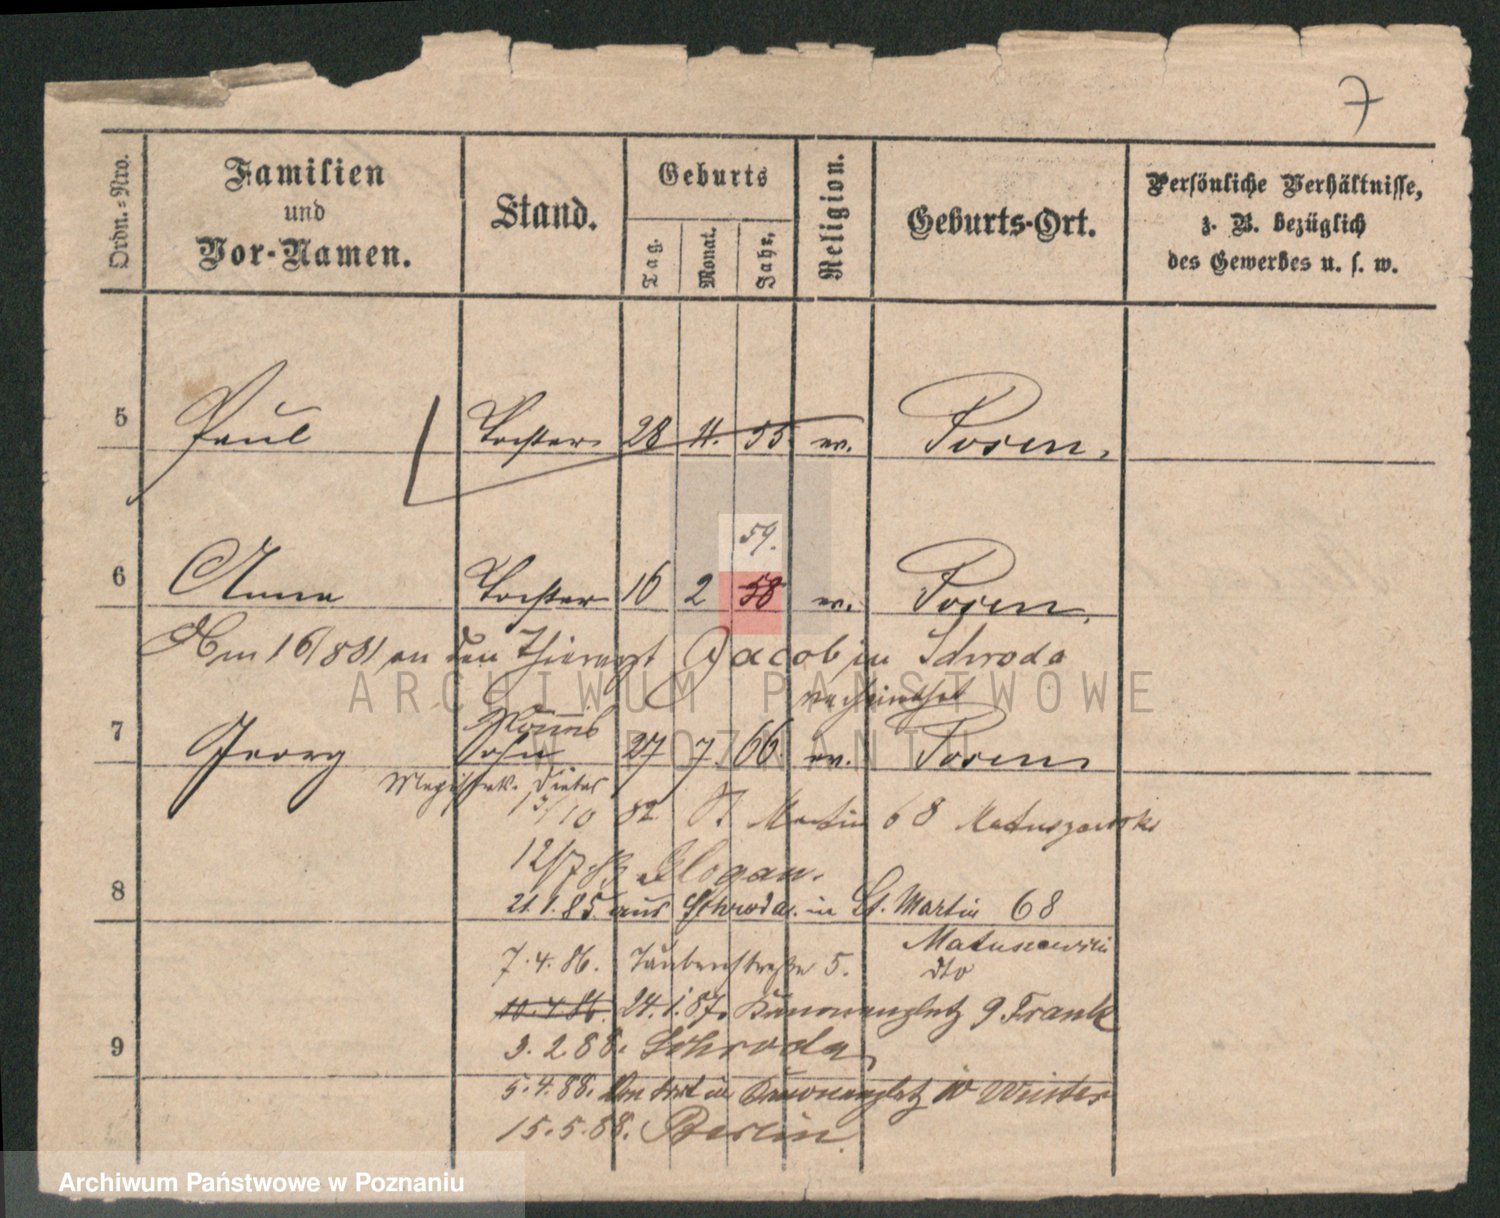 7
Ordn.=Nro.
Familien
und
Vor-Namen.
Stand.
Geburts
Tag.
Monat.
Jahr,
Religion.
Geburts-Ort.
Persönliche Verhältnisse,
z. B. bezüglich
des Gewerbes u. s. w.
5 Paul Tochter 28 11. 55. ev. Posen.
59.
6 Anna Tochter 16 2 58 ev. Posen.
an den Thierarzt Jacob in Schroda
verheirathet
7 Georg Sohn 27 7. 66. ev. Posen
10 82 St Martin 68
8 12/7 Glogau.
21.1.85 aus Schroda in St. Martin 68
7.4.86. Taubenstraße 5. dto
10.4.86. 24.1.87. Kanonenplatz 9 Frank
9 3.2.88. Schroda
5.4.88. Von dort in Kanonenplatz 10
15.5.88. Berlin
ARCHIWUM PAŃSTWOWE
W POZNANIU
Archiwum Państwowe w Poznaniu